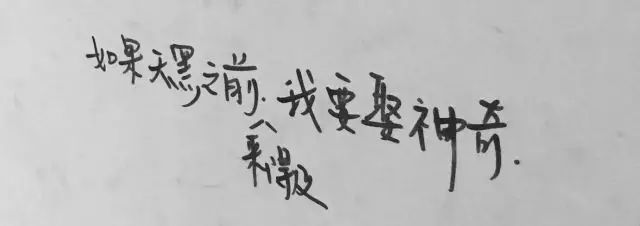 如果天黑之前来得及,我要娶神奇.